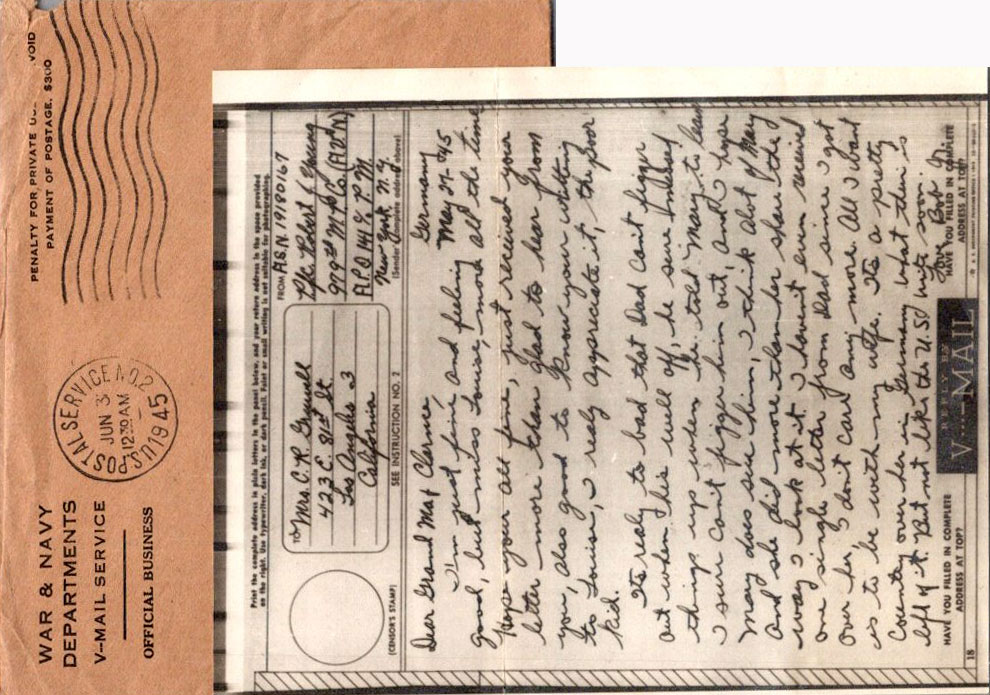 WAR & NAVY
DEPARTMENTS
V-MAIL SERVICE
OFFICIAL BUSINESS
U.S. POSTAL SERVICE NO. 2
JUN 3
12 30 AM
1945
PENALTY FOR PRIVATE US VOID
PAYMENT OF POSTAGE, $300
Print the complete address in plain letters in the panel below, and your return address in the space provided
on the right. Use typewriter, dark ink, or dark pencil. Faint or small writing is not suitable for photographing.
TO
Mrs. C. R.
423 E. 81st St
Los Angeles 3
California
FROM A.S.N. 19180167
Pfc Robert L Young
919th M.P. Co. (AVN)
A.P.O 141 % P.M.
New York N.Y.
(Sender's complete address above)
(CENSOR'S STAMP)
SEE INSTRUCTION NO. 2
Germany
May 27-045
Dear Grand Ma & Clarence
I'm just fine and feeling
good, but miss Louise, more all the time
Hope your all fine, just received your
letter more than glad to hear from
you, also good to know your writting
to Louise, I realy appreciate it, the poor
kid.
Its realy to bad that Dad cant figger
out when his well off, he sure
things up when he told Mary to leave
I sure can't figger him out, and I hope
Mary does sue him, I think alot of Mary
And she did more than her share the
way I look at it. I havent even received
one single letter from Dad since I got
Over her, I don't care any more. All I want
is to be with my wife. Its a pretty
Country over her in Germany what there is
left of it. But not like the U.S. Write soon.
Love Bob Jr.
HAVE YOU FILLED IN COMPLETE
ADDRESS AT TOP?
REPLY BY
V···-MAIL
HAVE YOU FILLED IN COMPLETE
ADDRESS AT TOP?
18